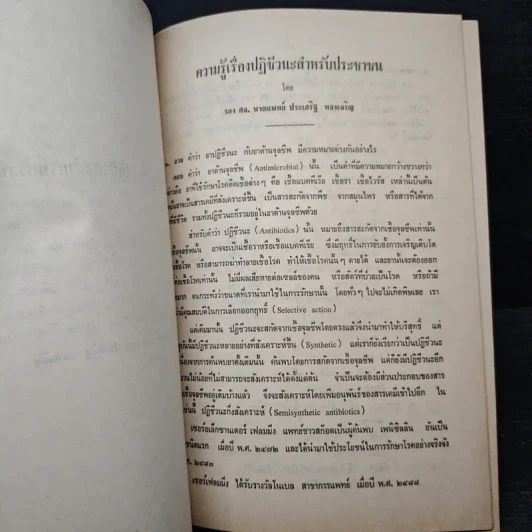 ความรู้เรื่องปฏิชีวนะสำหรับประชาชน
โดย
รอง ศจ. นายแพทย์ ประเสริฐ ทองเจริญ
๑. ถาม คำว่า ยาปฏิชีวนะ กับยาต้านจุลชีพ มีความหมายต่างกันอย่างไร
ตอบ คำว่า ยาต้านจุลชีพ (Antimicrobial) นั้น เป็นคำที่มีความหมายกว้างขวางกว่า
คือ ยาที่ใช้รักษาโรคติดเชื้อต่างๆ คือ เชื้อแบคทีเรีย เชื้อรา เชื้อไวรัส เหล่านี้เป็นต้น
อาจเป็นสารเคมีที่สังเคราะห์ขึ้น เป็นสารสะกัดจากพืช จากสมุนไพร หรือสารที่ได้จาก
ชีวิต รวมทั้งปฏิชีวนะก็รวมอยู่ในยาต้านจุลชีพด้วย
สำหรับคำว่า ปฏิชีวนะ (Antibiotics) นั้น หมายถึงสารสะกัดจากเชื้อจุลชีพเท่านั้น
เชื้อจุลชีพนั้น อาจจะเป็นเชื้อราหรือเชื้อแบคทีเรีย ซึ่งมีฤทธิ์ในการยับยั้งการเจริญเติบโต
เชื้อโรค หรือสามารถฆ่าทำลายเชื้อโรค ทำให้เชื้อโรคนั้นๆ ตายได้ และยานั้นจะต้องออก
ต่อเชื้อโรคเท่านั้น ไม่มีผลเสียหายต่อเซลล์ของคน หรือสัตว์ที่ป่วยเป็นโรค หรือถ้ามี
มาก จนกระทั่งว่าขนาดที่เรานำมาใช้ในการรักษานั้น โดยทั่วๆ ไปจะไม่เกิดพิษเลย เรา
คุณสมบัติในการเลือกออกฤทธิ์ (Selective action)
แต่เดิมมานั้น ปฏิชีวนะจะสะกัดจากเชื้อจุลชีพโดยตรงแล้วจึงนำมาทำให้บริสุทธิ์ แต่
ปฏิชีวนะหลายอย่างที่สังเคราะห์ขึ้น (Synthetic) แต่เราก็ยังเรียกว่าเป็นปฏิชีวนะ
เนื่องจากการค้นพบยาดั้งเดิมนั้น ค้นพบโดยการสะกัดจากเชื้อจุลชีพ แต่ก็ยังมีปฏิชีวนะอีก
จำนวนไม่น้อยที่ไม่สามารถจะสังเคราะห์ได้ตั้งแต่ต้น จำเป็นจะต้องมีส่วนประกอบของสาร
เชื้อจุลชีพอยู่เดิมบ้างแล้ว จึงจะสังเคราะห์โดยเพิ่มอนุพันธ์ของสารเคมีเข้าไปอีก ใน
นั้น ปฏิชีวนะกึ่งสังเคราะห์ (Semisynthetic antibiotics)
เซอร์อเล็กซานเดอร์ เฟลมมิ่ง แพทย์ชาวสกอตเป็นผู้ค้นพบ เพนิซิลลิน อันเป็น
ชนิดแรก เมื่อปี พ.ศ. ๒๔๗๒ และได้นำมาใช้ประโยชน์ในการรักษาโรคอย่างจริงจัง
เซอร์เฟลมมิ่ง ได้รับรางวัลโนเบล สาขาการแพทย์ เมื่อปี พ.ศ. ๒๔๘๘